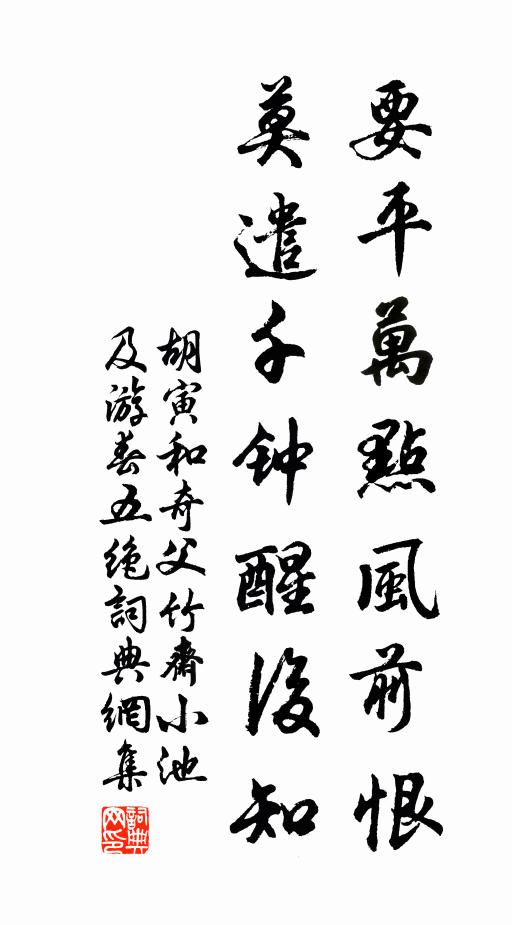 要平萬點風前恨
莫遣千钟醒後知
胡寅和奇父竹齋小池
及游春五絶詞典網集
詞典
网印